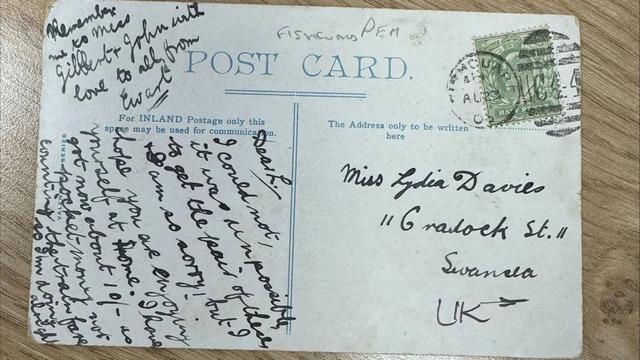 Remember
me to Miss
Gilbert & John with
love to all, from
Ewart
FISHGUARD PEM
POST CARD.
For INLAND Postage only this
space may be used for communication.
The Address only to be written
here
Dear L.
I could not,
it was impossible,
to get the pair of these
I am so sorry, but I
hope you are enjoying
yourself at home. I have
got now about 10/- as
pocket money not
counting the train fare
so I'm doing
alright
Miss Lydia Davies
"Cradock St."
Swansea
UK
AU